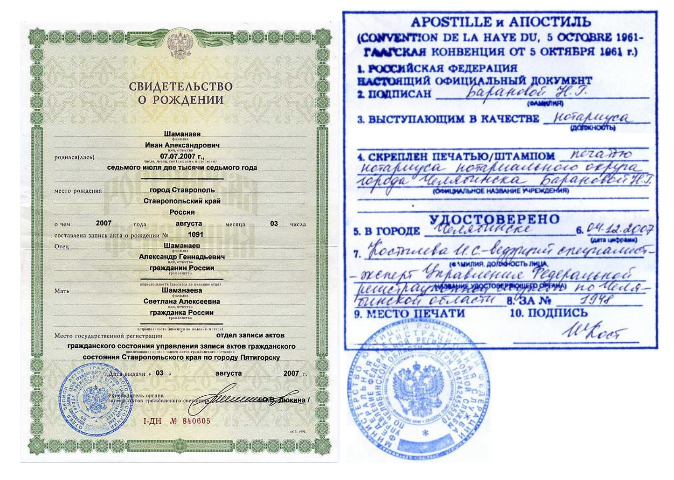 СВИДЕТЕЛЬСТВО
О РОЖДЕНИИ
Шаманаев
Иван Александрович
родился(лась) 07.07.2007 г.,
седьмого июля две тысячи седьмого года
место рождения город Ставрополь
Ставропольский край
Россия
о чем 2007 года августа месяца 03 числа
составлена запись акта о рождении № 1091
Отец Шаманаев
Александр Геннадьевич
гражданин России
Мать Шаманаева
Светлана Алексеевна
гражданка России
Место государственной регистрации отдел записи актов
гражданского состояния управления записи актов гражданского
состояния Ставропольского края по городу Пятигорску
Дата выдачи « 03 » августа 2007 г.
Руководитель органа
записи актов гражданского состояния
I-ДН № 840605
APOSTILLE и АПОСТИЛЬ
(CONVENTION DE LA HAYE DU, 5 OCTOBRE 1961-
ГААГСКАЯ КОНВЕНЦИЯ ОТ 5 ОКТЯБРЯ 1961 г.)
1. РОССИЙСКАЯ ФЕДЕРАЦИЯ
НАСТОЯЩИЙ ОФИЦИАЛЬНЫЙ ДОКУМЕНТ
2. ПОДПИСАН Барановой Н.Г.
(ФАМИЛИЯ)
3. ВЫСТУПАЮЩИМ В КАЧЕСТВЕ нотариуса
(ДОЛЖНОСТЬ)
4. СКРЕПЛЕН ПЕЧАТЬЮ/ШТАМПОМ печатью
нотариуса нотариального округа
города Челябинска Барановой Н.Г.
(ОФИЦИАЛЬНОЕ НАЗВАНИЕ УЧРЕЖДЕНИЯ)
УДОСТОВЕРЕНО
5. В ГОРОДЕ Челябинске 6. 04.12.2007
(дата цифрами)
7. Костилева И.С-ведущий специалист-
(ФАМИЛИЯ, ДОЛЖНОСТЬ ЛИЦА,
-эксперт Управления Федеральной
НАЗВАНИЕ УДОСТОВЕРЯЮЩЕГО ОРГАНА)
регистрационной службы по Челя-
бинской области 8. ЗА № 1948
9. МЕСТО ПЕЧАТИ 10. ПОДПИСЬ